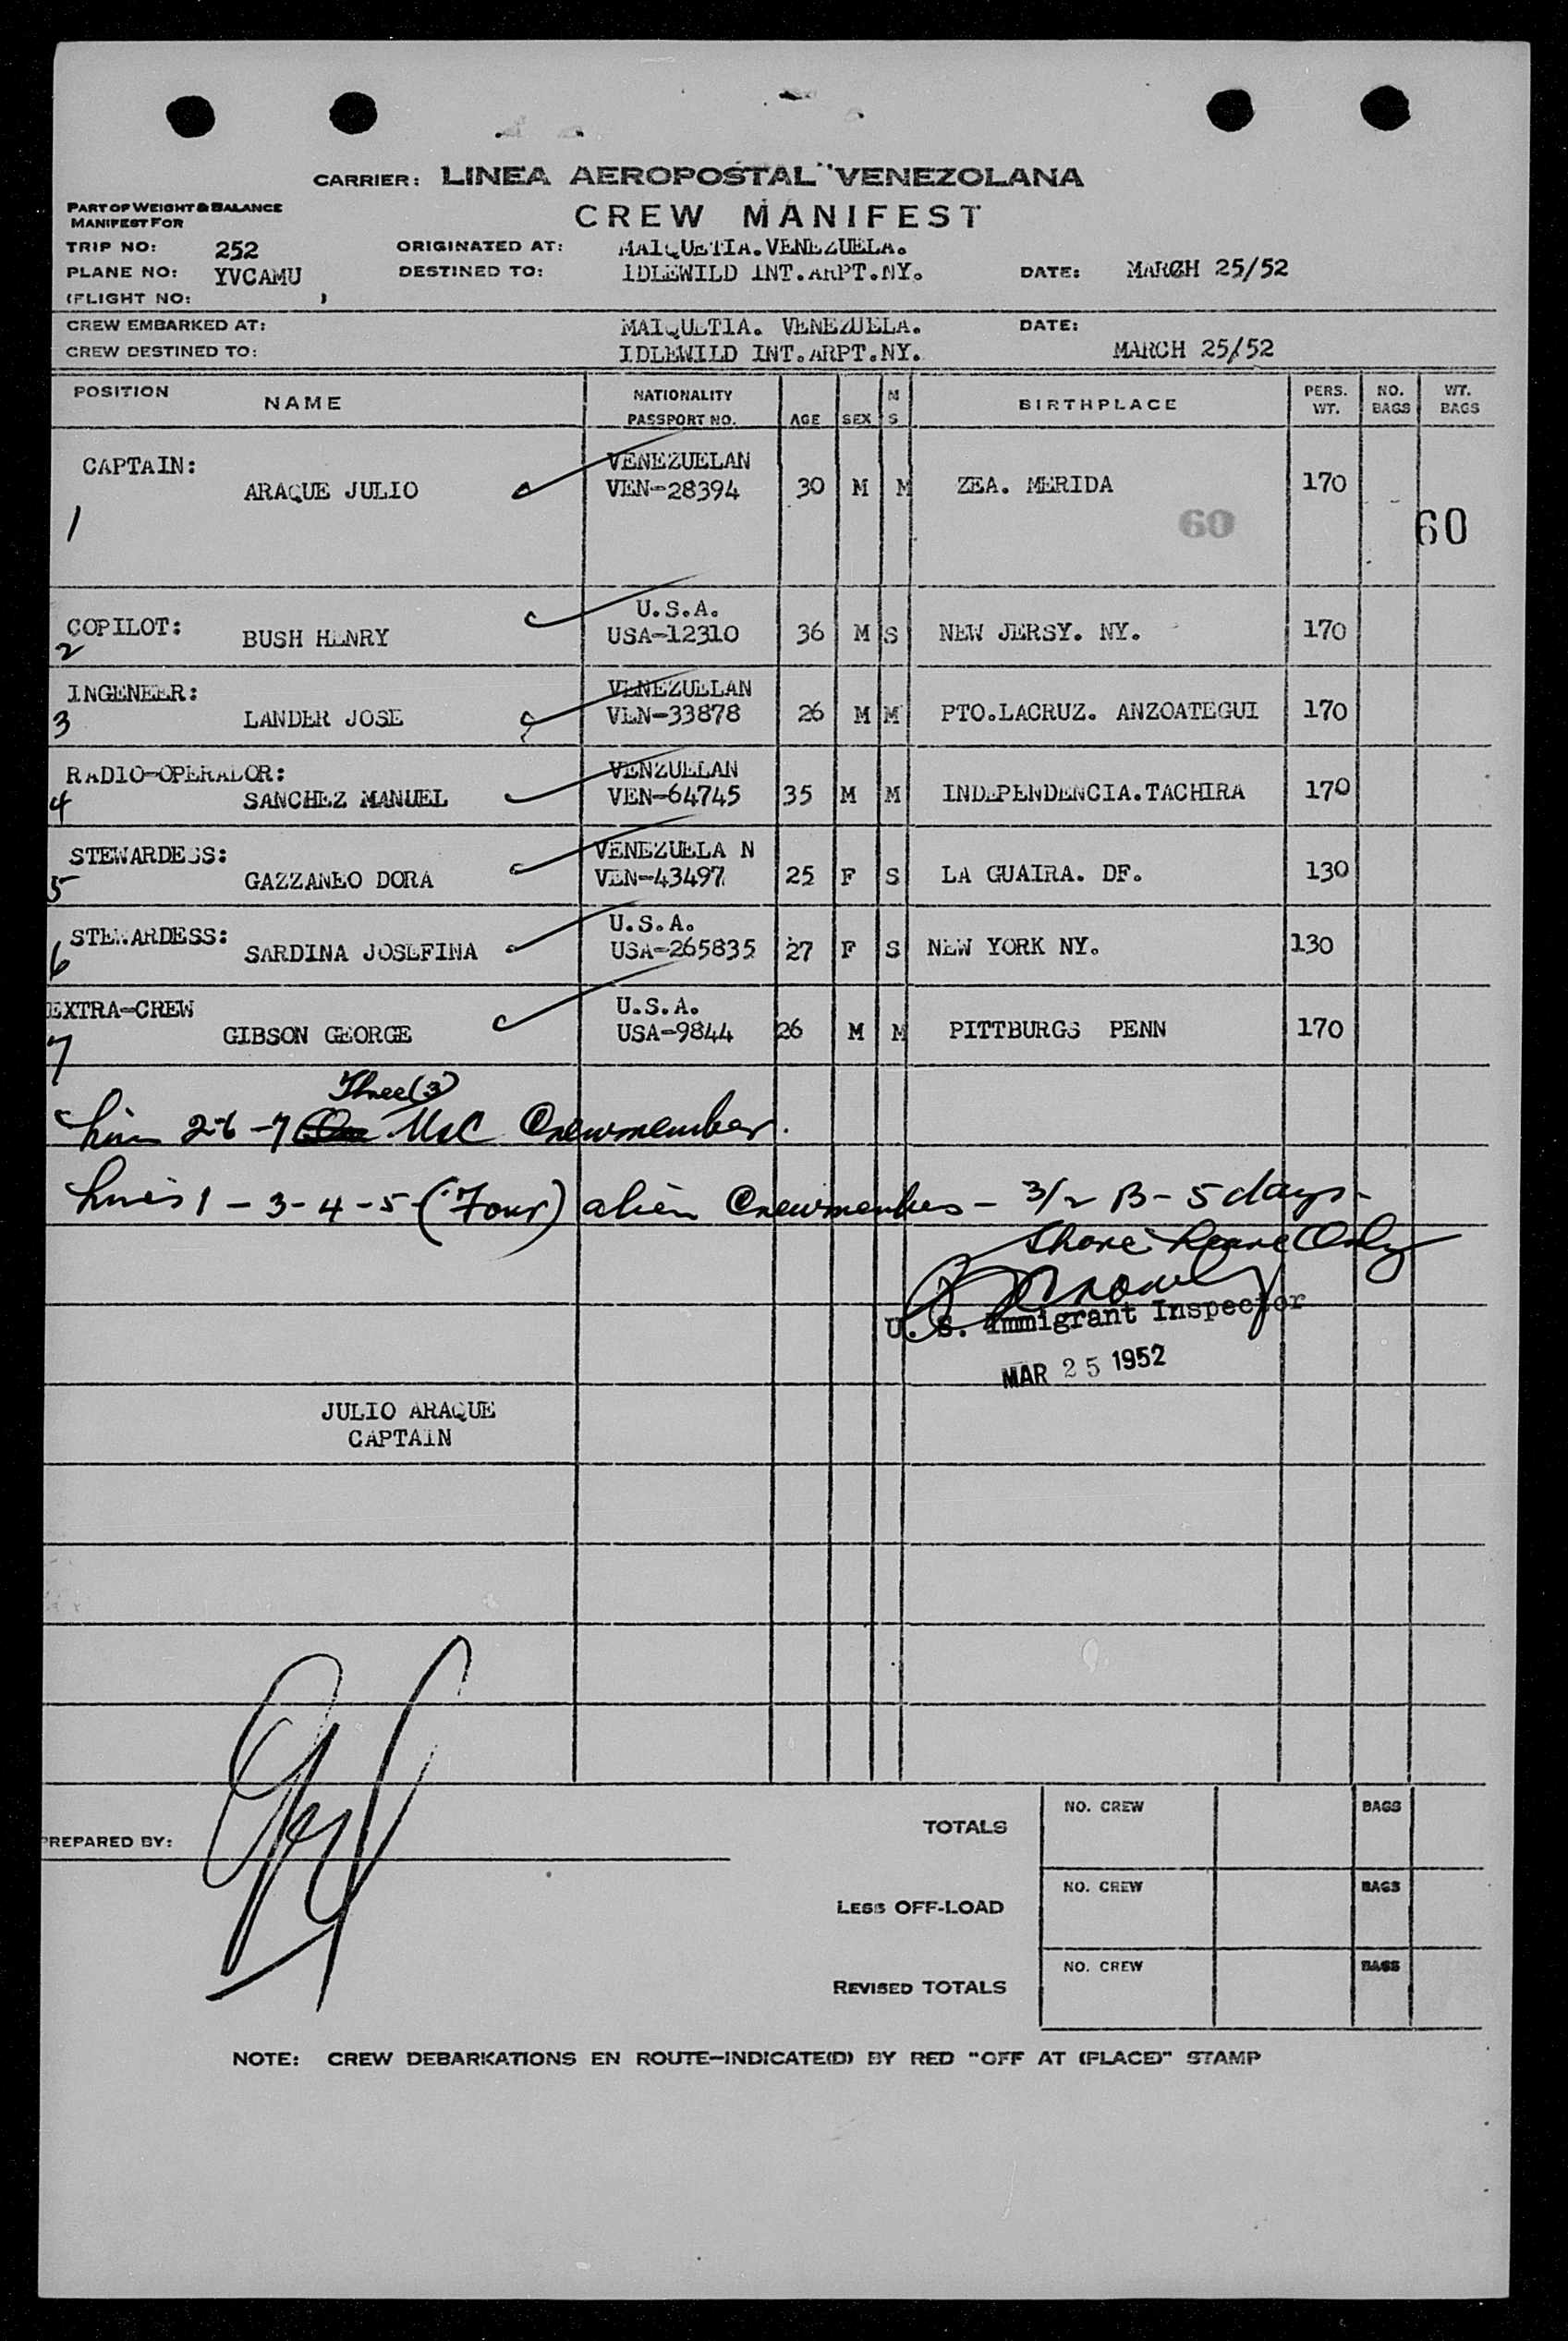 CARRIER: LINEA AEROPOSTAL VENEZOLANA
PART OF WEIGHT & BALANCE
MANIFEST FOR
CREW MANIFEST
TRIP NO: 252 ORIGINATED AT: MAIQUETIA. VENEZUELA.
PLANE NO: YVCAMU DESTINED TO: IDLEWILD INT.ARPT.NY. DATE: MARCH 25/52
(FLIGHT NO: )
CREW EMBARKED AT: MAIQUETIA. VENEZUELA. DATE:
CREW DESTINED TO: IDLEWILD INT.ARPT.NY. MARCH 25/52
POSITION NAME NATIONALITY PASSPORT NO. AGE SEX M S BIRTHPLACE PERS. WT. NO. BAGS WT. BAGS
CAPTAIN: VENEZUELAN
ARAQUE JULIO VEN-28394 30 M M ZEA. MERIDA 170
1 60 60
U.S.A.
COPILOT:
2 BUSH HENRY USA-12310 36 M S NEW JERSY. NY. 170
INGENEER: VENEZUELAN
3 LANDER JOSE VEN-33878 26 M M PTO.LACRUZ. ANZOATEGUI 170
RADIO-OPERADOR: VENZUELAN
4 SANCHEZ MANUEL VEN-64745 35 M M INDEPENDENCIA.TACHIRA 170
STEWARDESS: VENEZUELA N
5 GAZZANEO DORA VEN-43497 25 F S LA GUAIRA. DF. 130
STEWARDESS: U.S.A.
6 SARDINA JOSEFINA USA-265835 27 F S NEW YORK NY. 130
EXTRA-CREW U.S.A.
GIBSON GEORGE USA-9844 26 M M PITTBURGS PENN 170
7
Three (3)
2-6-7 USC Crewmember.
Lines 1-3-4-5-(Four) alien Crewmembers - 3/2 B - 5 days -
Shore Leave Only
U. S. Immigrant Inspector
MAR 25 1952
JULIO ARAQUE
CAPTAIN
PREPARED BY:
TOTALS NO. CREW BAGS
LESS OFF-LOAD NO. CREW BAGS
REVISED TOTALS NO. CREW BAGS
NOTE: CREW DEBARKATIONS EN ROUTE-INDICATE(D) BY RED "OFF AT (PLACE)" STAMP